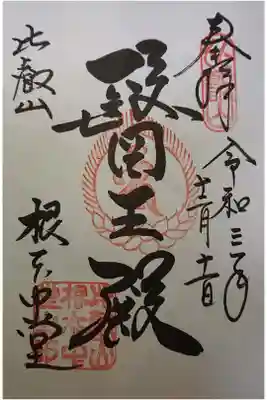 奉拝
令和三年
十一月十一日
醫王殿
比叡山
根本中堂